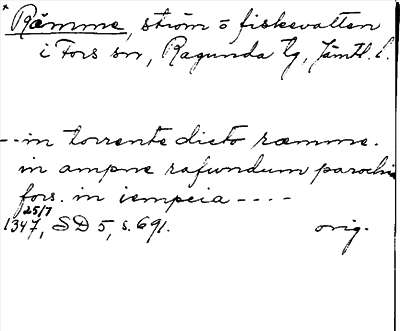 * Ræmme, ström o fiskevatten
i Fors sn, Ragunda tg, Jämtl. l.
-- in torrente dicto ræmme.
in ampne rafundum parochia
fors. in iempcia ----
25/7
1347, SD 5, s. 691. orig.